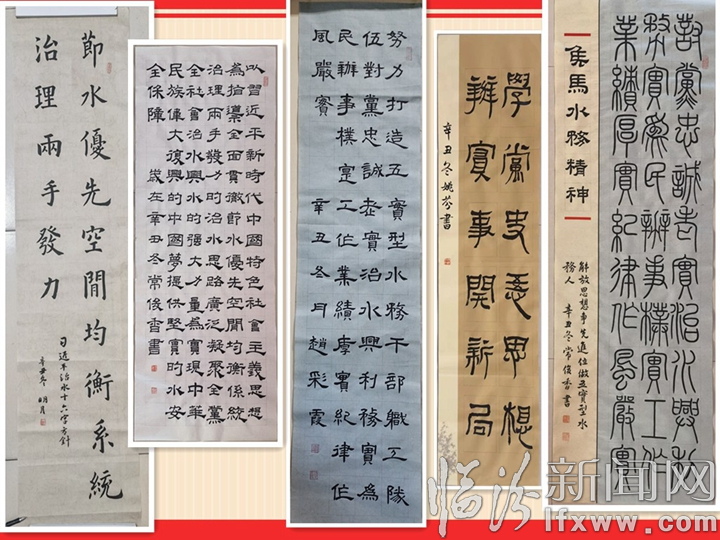 節水優先空間均衡系統
治理兩手發力
习近平治水十六字方針
辛丑冬 明月
以習近平新時代中國特色社會主義思想
為指導全面貫徹節水優先空間均衡係統
治理兩手發力的治水思路廣泛凝聚全黨
全社會治水興水的强大力量為實現中華
民族偉大復興的中國夢提供堅實的水安
全保障 歲在辛丑冬常俊香書
努力打造五實型水務干部職工隊
伍對黨忠誠老實治水興利務實為
民辦事樸實工作業績厚實紀律作
風嚴實 辛丑冬月趙彩霞
學黨史悟思想
辦實事開新局
辛丑冬姚芬書
侯馬水務精神
對黨忠誠老實治水興利
務實為民辦事樸實工作
業績厚實紀律作風嚴實
解放思想争先進位做五實型水
務人 辛丑冬 常俊香書
临汾新闻网
lfxww.com